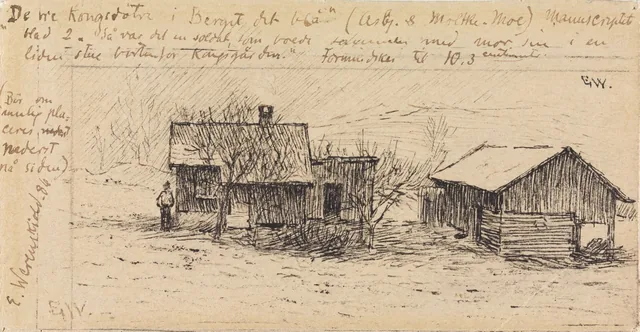 „De tre Kongsdötre i Berget det blå" (Asbj. & Moltke-Moe) Manuscriptet
blad 2 „Så var det en soldat som boede med mor sin i en
liden stue bortenfor Kongsgården." Formindskes til 10.3 centimeter
EW.
(Bör om
mulig pla-
ceres
nederst
på siden)
E. Werenskiold. 86
EW.